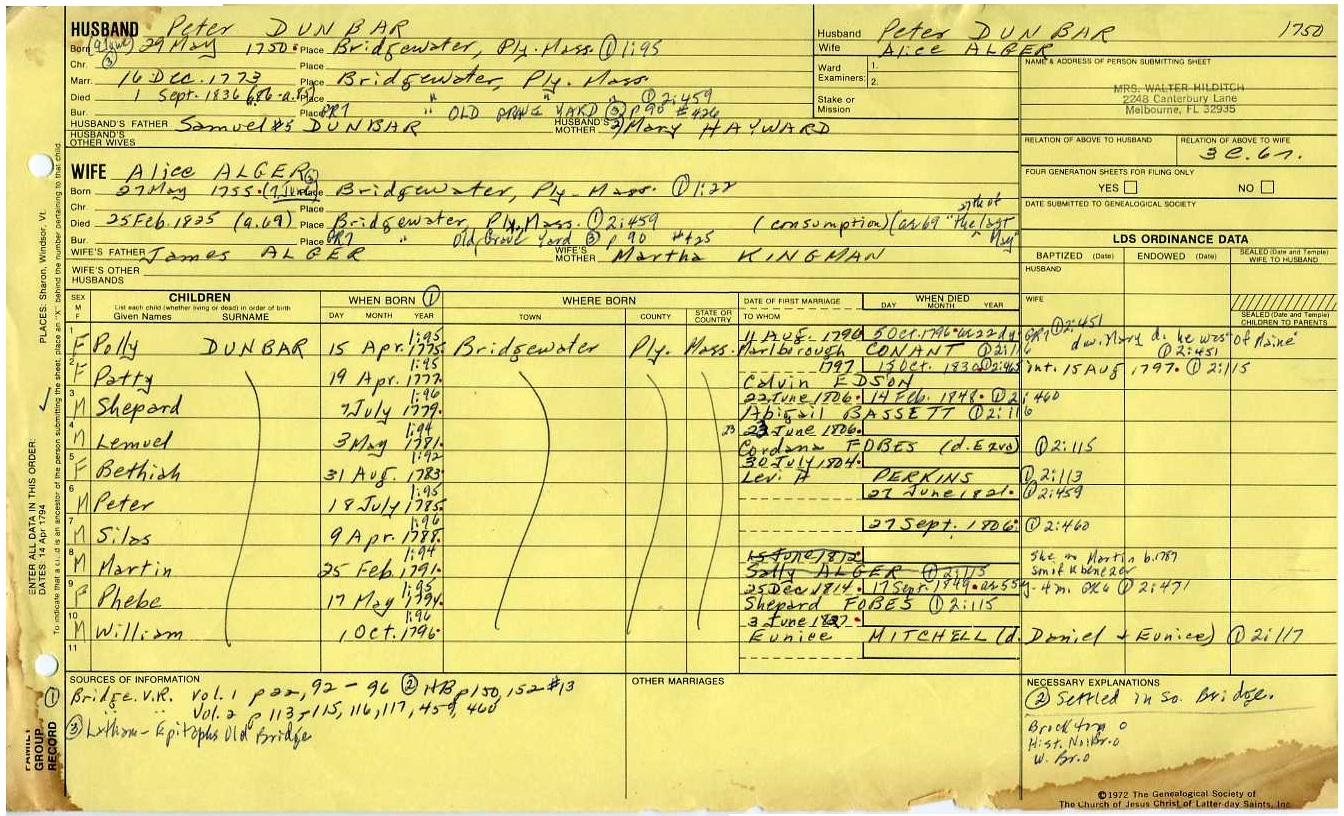 HUSBAND Peter DUNBAR
Born (9 June) 29 May 1750 Place Bridgewater, Ply. Mass. ① 1:95
Chr. ③ Place
Marr. 16 Dec. 1773 Place Bridgewater, Ply. Mass.
Died 1 Sept. 1836 Place " " ① 2:459
Bur. Place GR7 " OLD GRAVE YARD ③ p 90 #426
HUSBAND'S FATHER Samuel #5 DUNBAR HUSBAND'S MOTHER Mary HAYWARD
HUSBAND'S OTHER WIVES
Husband Peter DUNBAR 1750
Wife Alice ALGER
Ward Examiners: 1.
2.
Stake or Mission
NAME & ADDRESS OF PERSON SUBMITTING SHEET
MRS. WALTER HILDITCH
2248 Canterbury Lane
Melbourne, FL 32935
RELATION OF ABOVE TO HUSBAND RELATION OF ABOVE TO WIFE
3 c. 6r.
FOUR GENERATION SHEETS FOR FILING ONLY
YES NO
DATE SUBMITTED TO GENEALOGICAL SOCIETY
WIFE Alice ALGER ③
Born 27 May 1755 (7 June) Place Bridgewater, Ply. Mass. ① 1:22
Chr. Place
Died 25 Feb. 1825 (a. 69) Place Bridgewater, Ply. Mass. ① 2:459 (consumption) (as 69 "the 27th of last May"
Bur. Place GR7 " Old Grave Yard ③ p 90 #425
WIFE'S FATHER James ALGER WIFE'S MOTHER Martha KINGMAN
WIFE'S OTHER HUSBANDS
LDS ORDINANCE DATA
BAPTIZED (Date) ENDOWED (Date) SEALED (Date and Temple) WIFE TO HUSBAND
HUSBAND
WIFE
SEALED (Date and Temple) CHILDREN TO PARENTS
SEX M F CHILDREN WHEN BORN ① WHERE BORN DATE OF FIRST MARRIAGE WHEN DIED
List each child (whether living or dead) in order of birth
Given Names SURNAME DAY MONTH YEAR TOWN COUNTY STATE OR COUNTRY TO WHOM DAY MONTH YEAR
1 1:95 11 Aug. 1796 5 Oct. 1796 as 22 dy GR7 ① 2:451
F Polly DUNBAR 15 Apr. 1775 Bridgewater Ply. Mass. Marlborough CONANT ① 2:116 dw. Mary d. he was "of Maine" ① 2:451
2 1:95 1797 15 Oct. 1830 ① 2:465
F Patty 19 Apr. 1777 Calvin EDSON int. 15 Aug 1797 ① 2:115
3 1:96 22 June 1806 14 Feb. 1848 ① 2:460
M Shepard 7 July 1779 Abigail BASSETT ① 2:116
4 1:94 23 23 June 1806
M Lemuel 3 May 1781 Cordana FOBES (d. Ezra) ① 2:115
5 1:92 30 July 1804
F Bethiah 31 Aug. 1783 Levi H PERKINS ① 2:113
6 1:95 27 June 1821 ① 2:459
M Peter 18 July 1785
7 1:96 27 Sept. 1806 ① 2:460
M Silas 9 Apr. 1788
8 1:94 15 June 1812
M Martin 25 Feb. 1791 Sally ALGER ① 2:115 She m Martin b. 1787 son of Ebenezer
9 1:95 25 Dec 1814 17 Sept. 1849 as 55y-4m. GR6 ① 2:471
F Phebe 17 May 1794 Shepard FOBES ① 2:115
10 1:96 3 June 1827
M William 1 Oct. 1796 Eunice MITCHELL (d. Daniel + Eunice) ① 2:117
11
SOURCES OF INFORMATION
① Bridge. V.R. Vol. 1 p 22, 92-96 ② HB p 150, 152 #13
" " Vol. 2 p 113-115, 116, 117, 459, 460
③ Latham - Epitaphs Old Bridge
OTHER MARRIAGES
NECESSARY EXPLANATIONS
② Settled in So. Bridge.
Brockton 0
Hist. No. Br. 0
W. Br. 0
©1972 The Genealogical Society of
The Church of Jesus Christ of Latter-day Saints, Inc.
FAMILY GROUP RECORD
ENTER ALL DATA IN THIS ORDER:
DATES: 14 Apr 1794
PLACES: Sharon, Windsor, Vt.
To indicate that a child is an ancestor of the person submitting the sheet, place an "X" behind the number pertaining to that child.